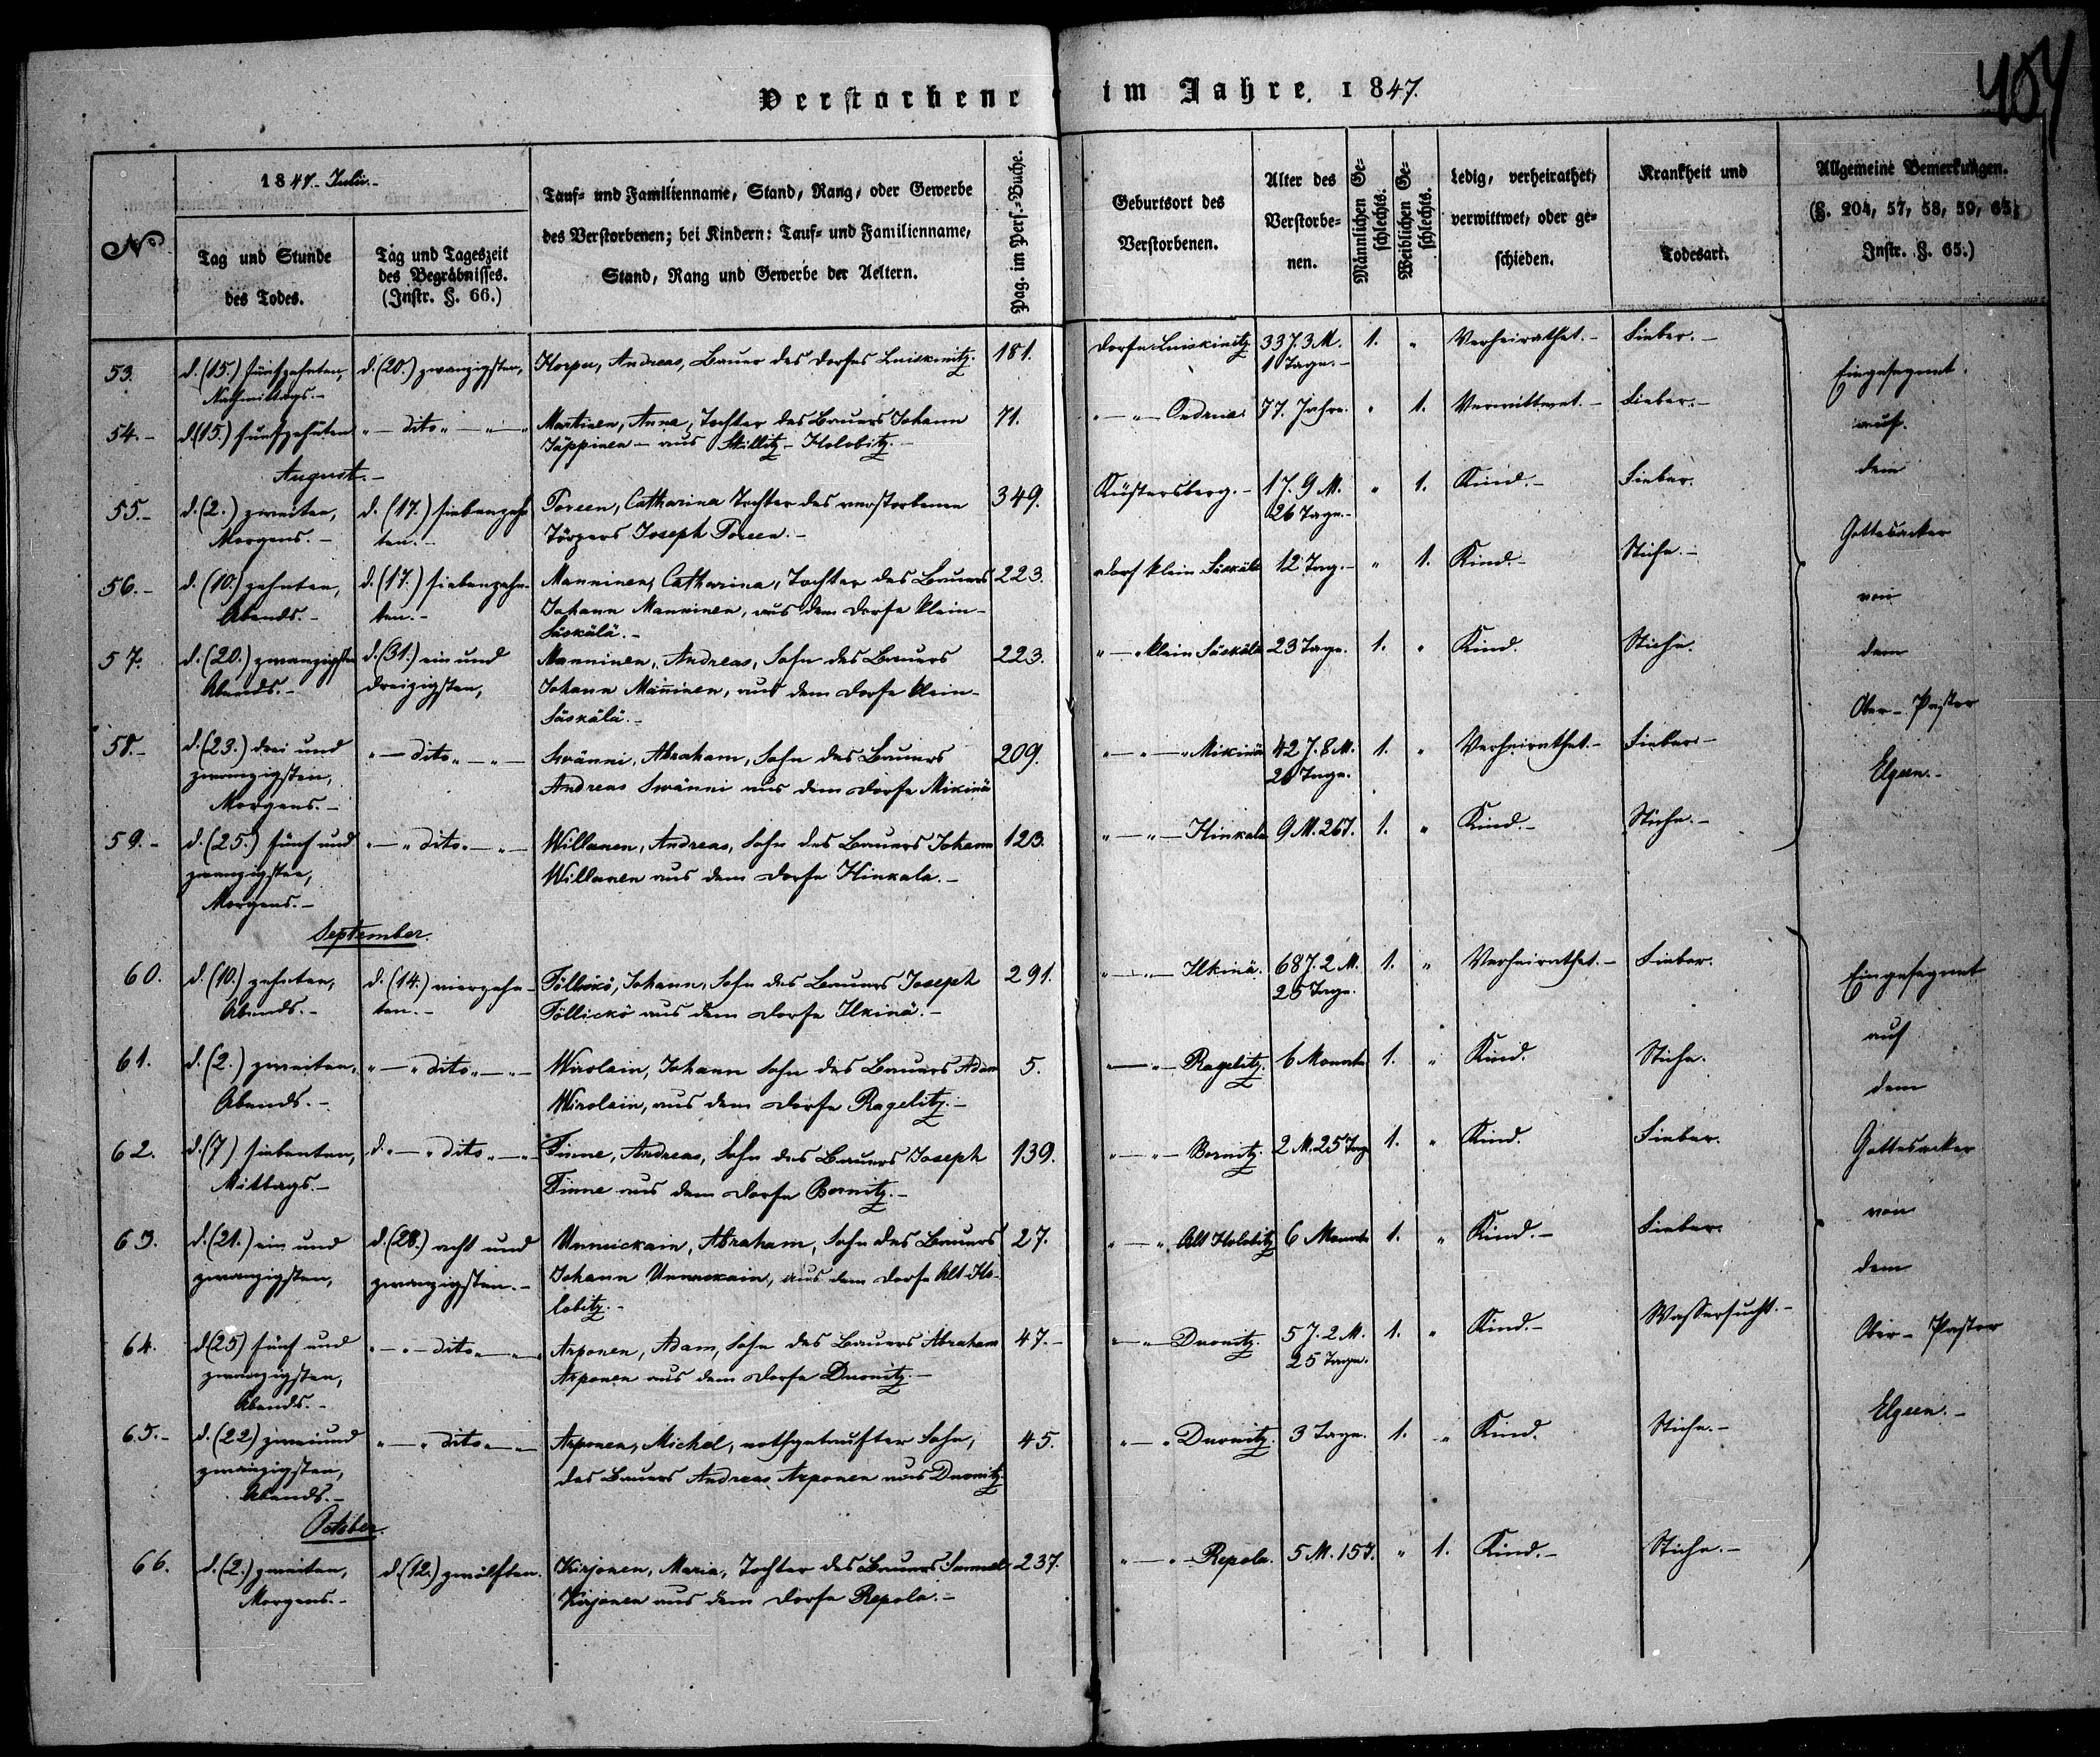 Verstorbene im Jahre 1847.
1847. Julii.
No
Tag und Stunde des Todes.
Tag und Tageszeit des Begräbnisses. (Instr. §. 66.)
Tauf- und Familienname, Stand, Rang, oder Gewerbe
des Verstorbenen; bei Kindern: Tauf- und Familienname,
Stand, Rang und Gewerbe der Aeltern.
Pag. im Pers.-Buche.
Geburtsort des Verstorbenen.
Alter des Verstorbenen.
Männlichen Geschlechts.
Weiblichen Geschlechts.
Ledig, verheirathet, verwittwet, oder geschieden.
Krankheit und Todesart.
Allgemeine Bemerkungen.
(§. 204, 57, 58, 59, 65; Instr. §. 65.)
53. d. (15.) fünfzehnten, Nachmittags.- d. (20.) zwanzigsten, Korpu, Andreas, Bauer des Dorfes 181. Dorfe 33 J. 3 M. 1 Tage.- 1. " Verheirathet.- Fieber.-
54.- d. (15.) fünfzehnten "-dito"-"- Martinen, Anna, Tochter des Bauers Johann
Jäppinen - aus Skillitz-Holobitz.- 71. "-"- 77. Jahre. " 1. Verwittwet.- Fieber.-
August.-
55.- d. (2.) zweiten, Morgens.- d. (17.) siebenzehnten.- Toreen, Catharina Tochter des verstorbenen
Joseph Toreen.- 349. Küstersberg.- 1 J. 9 M. 26 Tage.- " 1. Kind.- Fieber.
56.- d. (10.) zehnten, Abends.- d. (17.) siebenzehnten.- Manninen, Catharina, Tochter des Bauers
Johann Manninen, aus dem Dorfe klein-
Säskälä.- 223. Dorf klein Säskälä 12 Tag.- " 1. Kind.- Stiche.-
57. d. (20.) zwanzigsten Abends.- d. (31.) ein und dreizigsten, Manninen, Andreas, Sohn des Bauers
Johann Manninen, aus dem Dorfe klein-
Säskälä.- 223. "-" klein Säskälä 23 Tage. 1. " Kind. Stiche.
58.- d. (23.) drei und zwanzigsten, Morgens.- "-dito"-"- Swänni, Abraham, Sohn des Bauers
Andreas Swänni aus dem Dorfe Mikinä 209. "-"-" Mikinä 42 J. 8 M. 20 Tage. 1. " Verheirathet.- Fieber-
59.- d. (25.) fünf und zwanzigsten, Morgens.- "-"dito"-"- Willanen, Andreas, Sohn des Bauers Johann
Willanen aus dem Dorfe Hinkala.- 123. "-"- Hinkala 9 M. 26 T. 1. " Kind.- Stiche.-
Eingesegnet.
auf
dem
Gottesacker
von
dem
Ober-Pastor
Elgeen.-
September.
60. d. (10.) zehnten, Abends.- d. (14.) vierzehnten.- Föllickö, Johann, Sohn des Bauers Joseph
Föllickö aus dem Dorfe Ilkinä.- 291. "-"- Ilkinä. 68 J. 2 M. 25 Tage. 1. " Verheirathet.- Fieber.
61. d. (2.) zweiten, Abends.- "-"dito"-"- Wirolain, Johann Sohn des Bauers Adam
Wirolain, aus dem Dorfe Ragelitz.- 5. "-"- Ragelitz. 6 Monate 1. " Kind. Stiche.
62. d. (7) siebenten, Mittags.- d."-"dito"-"- Tinne, Andreas, Sohn des Bauers Joseph
Tinne aus dem Dorfe Bornitz.- 139. "-"- Bornitz. 2 M. 25 Tage 1. " Kind. Fieber.
63. d. (21.) ein und zwanzigsten, d. (28.) acht und zwanzigsten.- Unnuckain, Abraham, Sohn des Bauers
Johann Unnuckain, aus dem Dorfe Alt-Ho-
lobitz.- 27. "-" Alt Holobitz 6 Monate 1. " Kind.- Fieber.
64. d. (25) fünf und zwanzigsten, Abends.- "-"-dito"-"- Arponen, Adam, Sohn des Bauers Abraham
Arponen aus dem Dorfe Duonitz.- 47.- "-"- Duonitz. 5 J. 2 M. 25 Tage. 1. " Kind.- Wassersucht.-
65.- d. (22) zweiund zwanzigsten, Abends.- "-"dito"-"- Arponen, Michel, nothgetaufter Sohn,
des Bauers Andreas Arponen aus Duonitz. 45. "-"- Duonitz. 3 Tage. 1. " Kind. Stiche.-
October.
66. d. (2.) zweiten, Morgens.- d. (12.) zwölften. Kirjonen, Maria, Tochter des Bauers Samuel
Kirjonen aus dem Dorfe Repola.- 237. "-"- Repola. 5 M. 15 T. " 1. Kind.- Stiche.-
Eingesegnet
auf
dem
Gottesacker
von
dem
Ober-Pastor
Elgeen.-